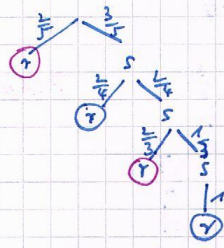 2/5 3/5
r s
2/4 2/4
r s
2/3 1/3
r s
1
r